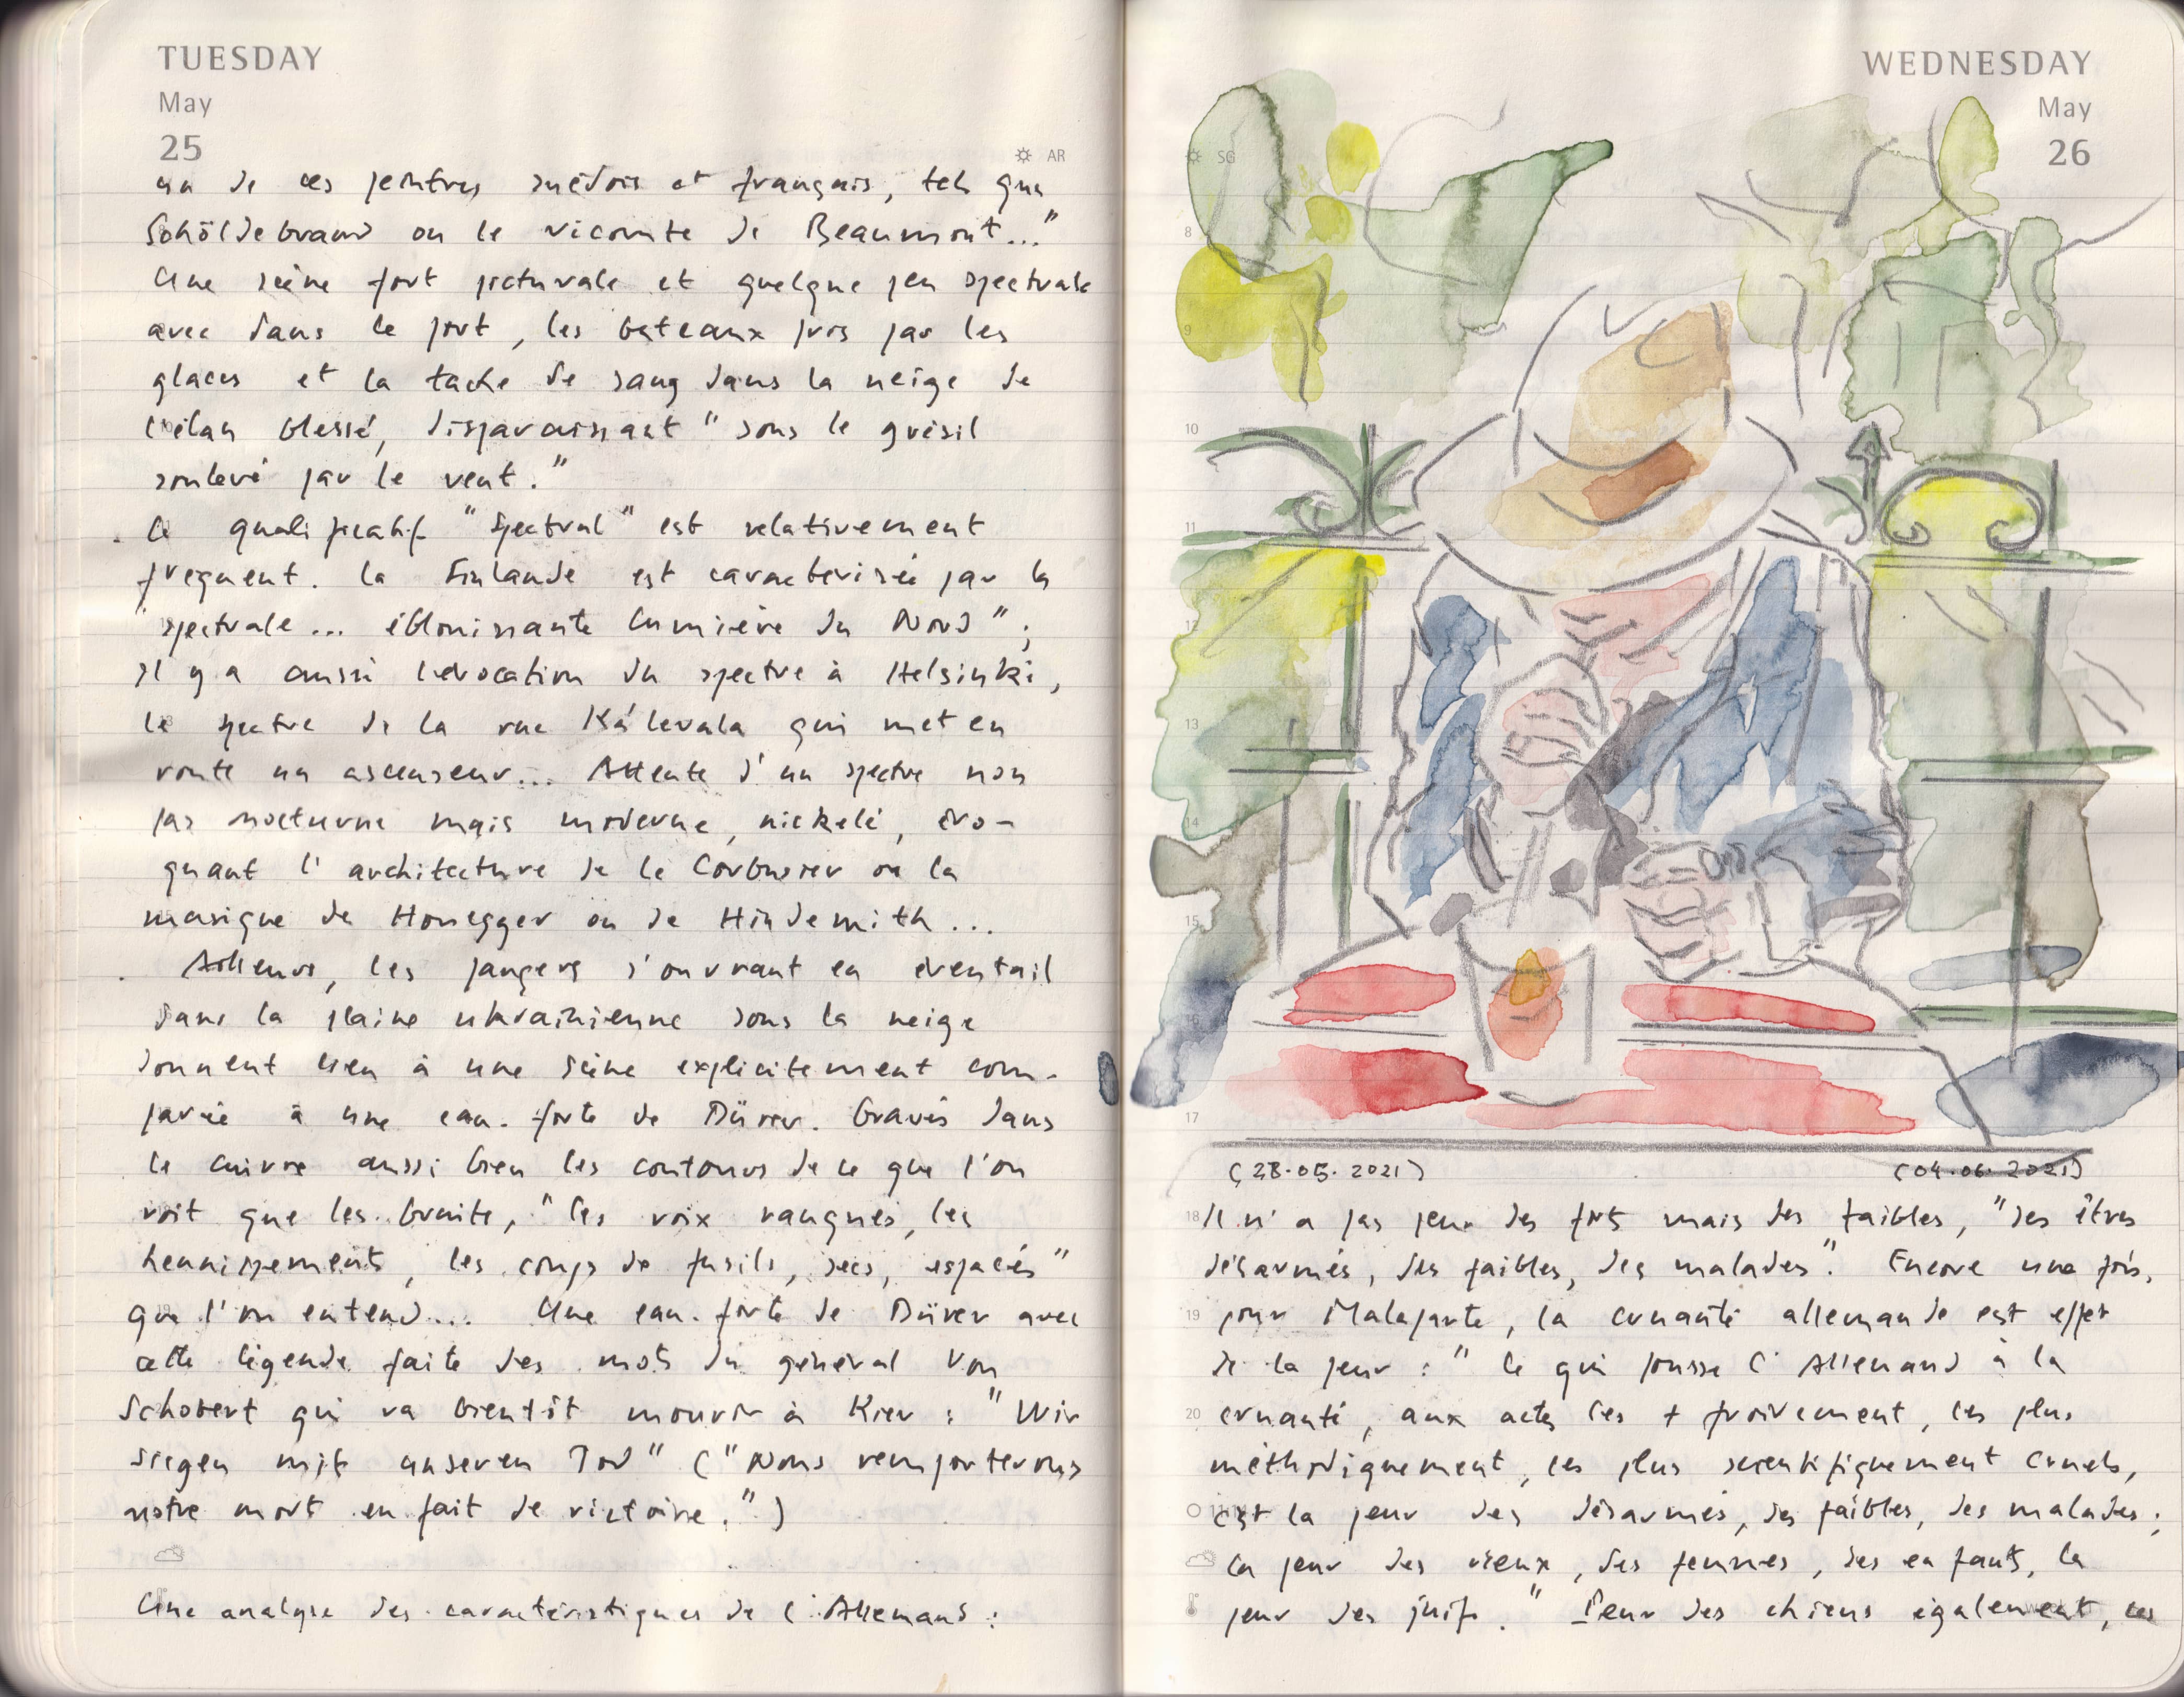 TUESDAY
May
25
AR
un de ces peintres suédois et français, tels que
Schöldebrand ou le vicomte de Beaumont..."
Une scène fort picturale et quelque peu spectrale
avec dans le port, les bateaux pris par les
glaces et la tache de sang dans la neige de
l'élan blessé, disparaissant "sous le grésil
soulevé par le vent."
Ce qualificatif "spectral" est relativement
frequent. La Finlande est caractérisée par la
"spectrale... éblouissante lumière du Nord";
il y a aussi l'évocation du spectre à Helsinki,
le spectre de la rue Kálevala qui met en
route un ascenseur... Attente d'un spectre non
pas nocturne mais moderne, nickelé, évo-
quant l'architecture de le Corbusier ou la
musique de Honegger ou de Hindemith...
Ailleurs, les panzers s'ouvrant en éventail
dans la plaine ukrainienne sous la neige
donnent lieu à une scène explicitement com-
parée à une eau-forte de Dürer. Gravés dans
le cuivre aussi bien les contours de ce que l'on
voit que les bruits, "les voix rauques, les
hennissements, les coups de fusils, secs, espacés"
que l'on entend... Une eau-forte de Dürer avec
cette légende faite des mots du général Von
Schobert qui va bientôt mourir à Kiev : "Wir
siegen mit unseren Tod" ("Nous remporterons
notre mort en fait de victoire.")
Une analyse des caractéristiques de l'Allemand :
WEDNESDAY
May
26
SG
8
9
10
11
13
14
15
16
17
(28.05.2021) (04.06.2021)
18 Il n'a pas peur des forts mais des faibles, "des êtres
désarmés, des faibles, des malades". Encore une fois,
19 pour Malaparte, la cruauté allemande est effet
de la peur : "Ce qui pousse l'Allemand à la
20 cruauté, aux actes les + froidement, les plus
méthodiquement, les plus scientifiquement cruels,
c'est la peur des désarmés, des faibles, des malades ;
la peur des vieux, des femmes, des enfants, la
peur des juifs." Peur des chiens également, ces